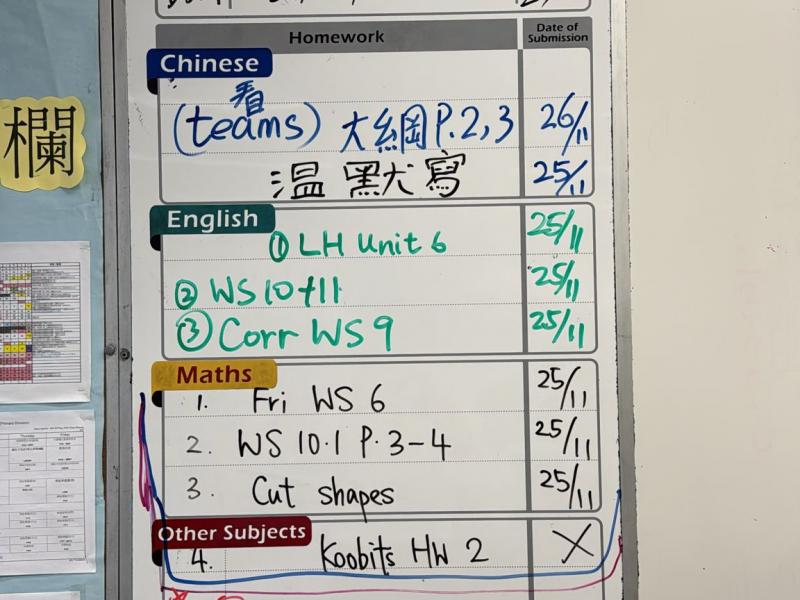 Homework Date of Submission
Chinese
看
(teams) 大綱 P.2,3 26/11
溫默寫 25/11
欄
English
① LH Unit 6 25/11
② WS 10+11 25/11
③ Corr WS 9 25/11
Maths
1. Fri WS 6 25/11
2. WS 10.1 P.3-4 25/11
3. Cut shapes 25/11
Other Subjects
4. Koobits HW 2 X